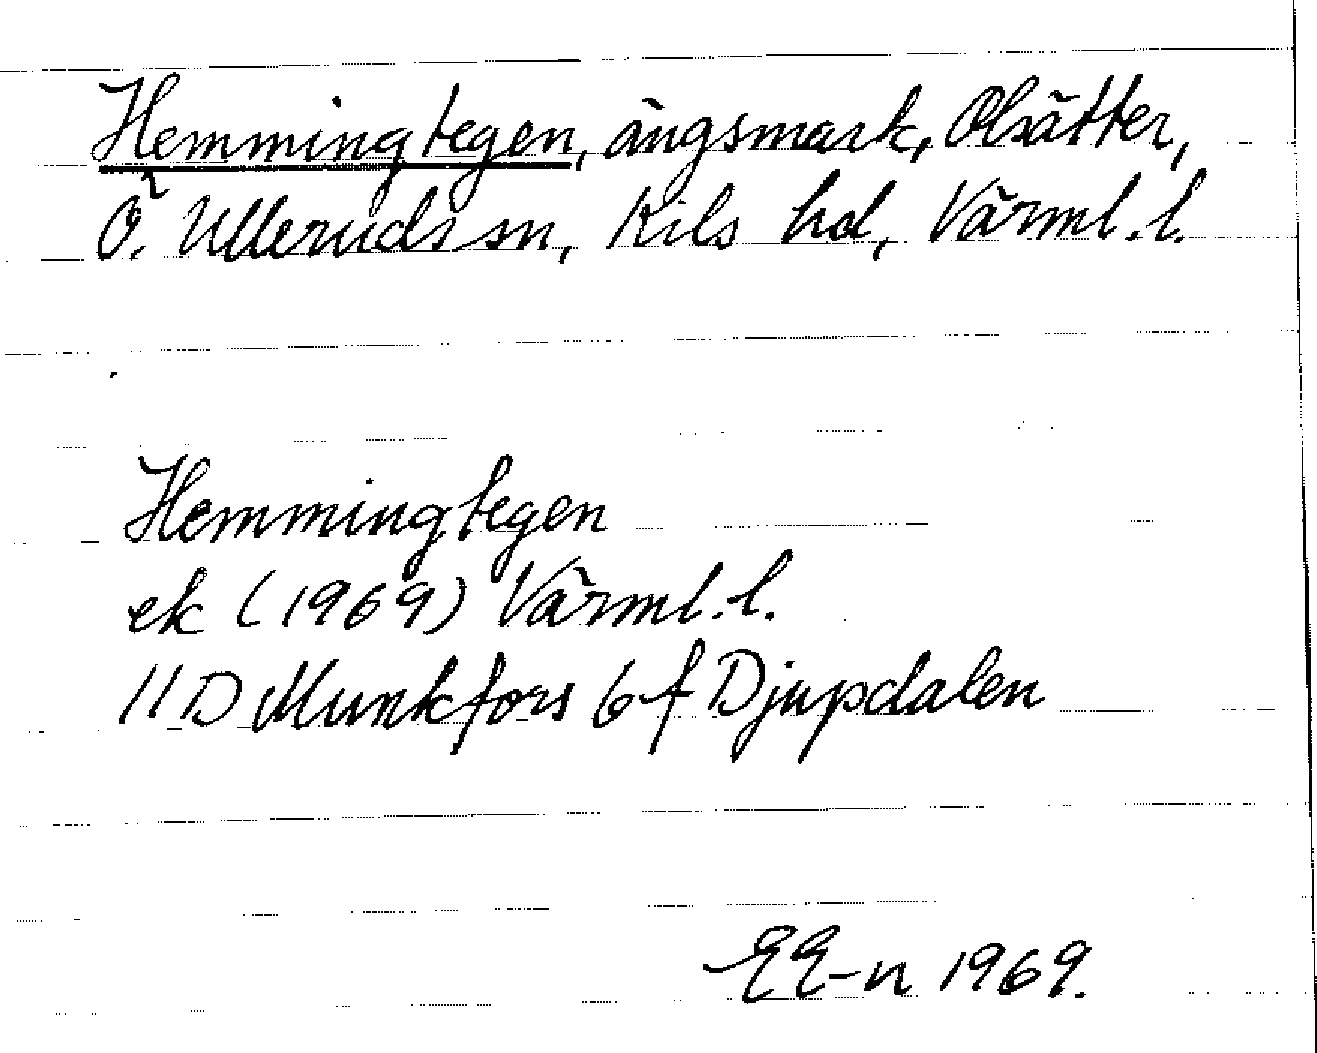 Hemmingtegen, ängsmark, Olsätter,
Ö. Ulleruds sn, Kils hd, Värml. l.
Hemmingtegen
ek (1969) Värml. l.
11 D Munkfors 6 f Djupdalen
EE-n 1969.